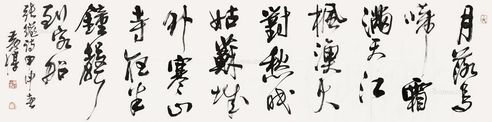 月落烏
啼霜
滿天江
楓漁火
對愁眠
姑蘇城
外寒山
寺夜半
鐘聲
到客船
張繼詩甲申